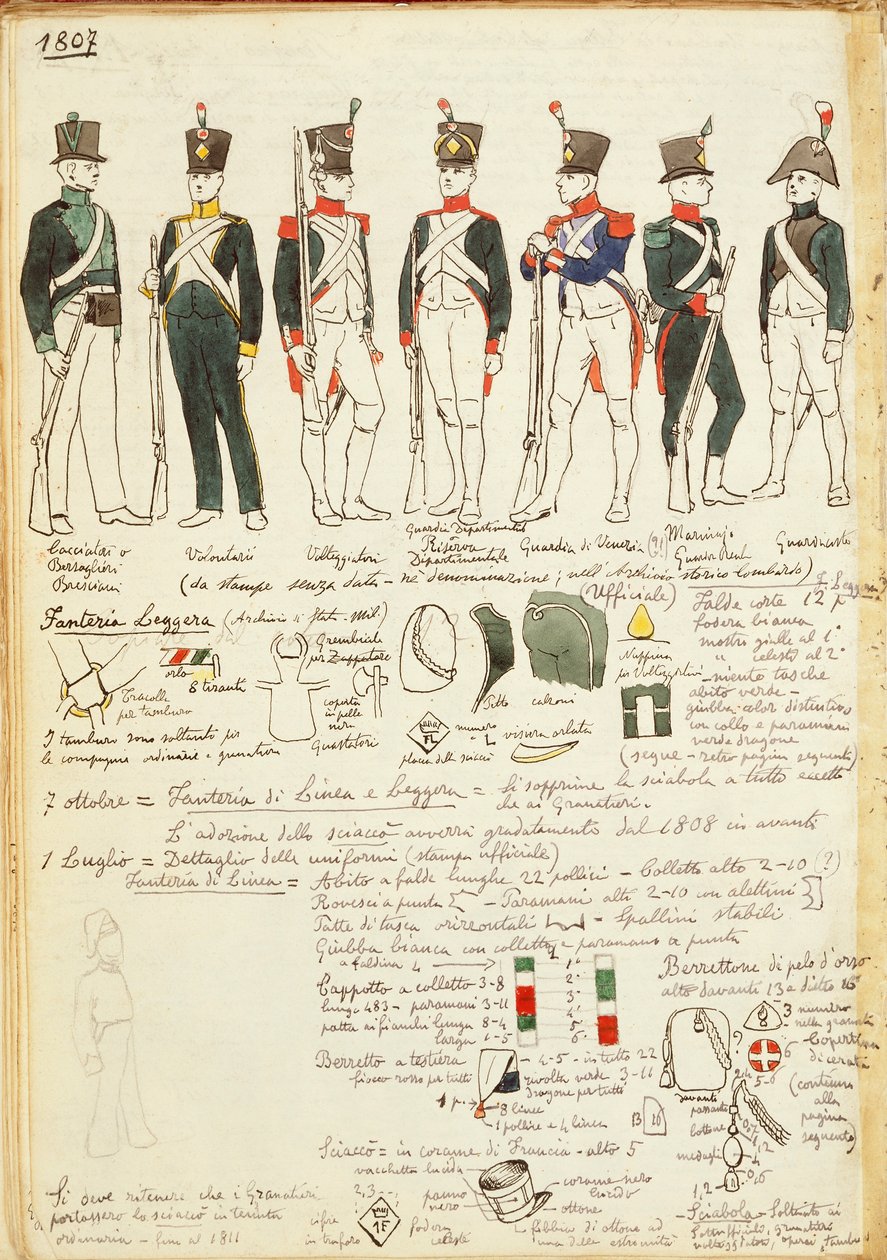 1807
Cacciatori o
Bersaglieri
Bresciani
Volontarii
Volteggiatori
Guardia Dipartimentale
Riserva
Dipartimentale
Guardia di Venezia (?)
Guardacoste
(da stampe senza data - nè denominazione; nell'Archivio storico lombardo)
Fanteria Leggera (Archivio di Stato - Mil.)
(Ufficiale)
orlo
8 tiranti
Tracolla
per tamburo
I tamburo sono soltanto per
le compagnie ordinarie e granatieri
Grembiale
per Zappatore
coperta
in pelle
nera
Guastatori
Petto
calzoni
FL
numero
placca dello sciaccò
visiera orlata
Nappina
per Volteggiatori
Falde corte 12 p
fodera bianca
mostre gialle al 1°
" celesti al 2°
niente tasche
abito verde -
giubba color distintivo
con collo e paramani
verde dragone
(segue - retro pagina seguente)
7 ottobre = Fanteria di Linea e Leggera = Si sopprime la sciabola a tutti eccetto
che ai Granatieri.
L'adozione dello sciaccò avverrà gradatamente dal 1808 in avanti
1 Luglio = Dettaglio delle uniformi (stampa ufficiale)
Fanteria di Linea = Abito a falde lunghe 22 pollici - Colletto alto 2-10 (?)
Rovesci a punta - Paramani alti 2-10 con alettini
Patte di tasca orizzontali - Spallini stabili
Giubba bianca con colletto e paramano a punta
a faldina 4
Cappotto a colletto 3-8
lungo 483 - paramani 3-11
patta ai fianchi lunga 8-4
larga 1-5
1°
2°
3°
4°
5°
6°
Berrettone di pelo d'orso
alto davanti 13 e dietro 16
3 numero
nella granata
Copertina
di cerata
(continua
alla
pagina
seguente)
Berretto a testiera
fiocco rosso per tutti
4-5 - in tutto 22
rivolta verde 3-11
dragone per tutti
1 p.
8 linee
1 pollice e 4 linee
13
16
?
6
davanti
passante
bottone
medaglia
1,2
Sciaccò = in corame di Francia - alto 5
vacchetta lucida
panno
nero
corame nero
lucido
ottone
fibbia di ottone ad
una delle estremità
2,3
cifre
in traforo
1F
fodera
celeste
Si deve ritenere che i Granatieri
portassero lo sciaccò in tenuta
ordinaria - fino al 1811
Sciabola - Soltanto ai
Sottufficiali, granatieri
volteggiatori, operai, tamburi